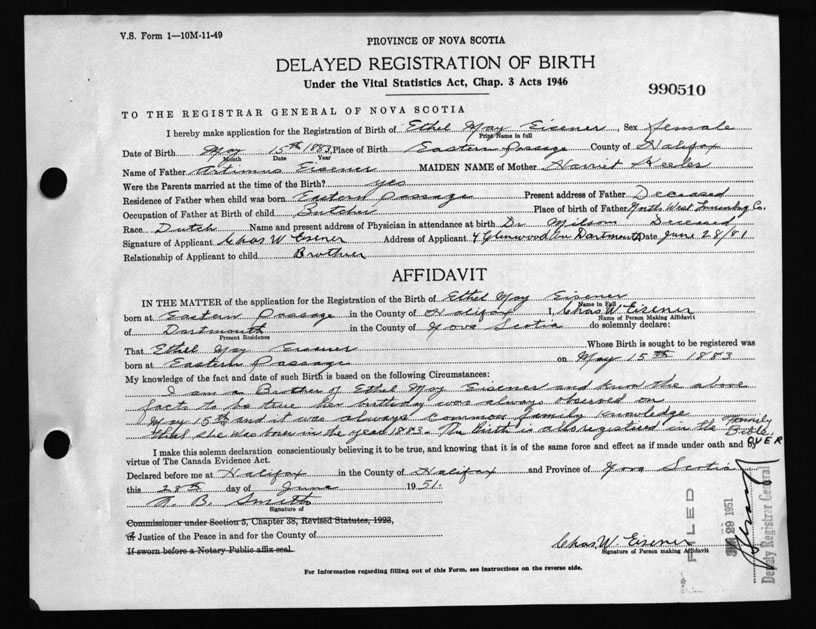 V.S. Form 1—10M-11-49
PROVINCE OF NOVA SCOTIA
DELAYED REGISTRATION OF BIRTH
Under the Vital Statistics Act, Chap. 3 Acts 1946
990510
TO THE REGISTRAR GENERAL OF NOVA SCOTIA
I hereby make application for the Registration of Birth of Ethel May Eisener, Sex female
Print Name in full
Date of Birth May 15th 1883, Place of Birth Eastern Passage County of Halifax
Month Date Year
Name of Father Artimus Eisener MAIDEN NAME of Mother Harriet
Were the Parents married at the time of the Birth? yes
Residence of Father when child was born Eastern Passage Present address of Father Deceased
Occupation of Father at Birth of child Butcher Place of birth of Father North West Lunenburg Co.
Race Dutch Name and present address of Physician in attendance at birth Dr Deceased
Signature of Applicant Chas W Eisener Address of Applicant Glenwood Av Dartmouth Date June 28/
Relationship of Applicant to child Brother
AFFIDAVIT
IN THE MATTER of the application for the Registration of the Birth of Ethel May Eisener
Name in Full
born at Eastern Passage in the County of Halifax I, Chas W. Eisener
Name of Person Making Affidavit
of Dartmouth in the County of Nova Scotia do solemnly declare:
Present Residence
That Ethel May Eisener Whose Birth is sought to be registered was
born at Eastern Passage on May 15th 1883
My knowledge of the fact and date of such Birth is based on the following Circumstances:
I am a Brother of Ethel May Eisener and know the above
facts to be true her birthday was always observed on
May 15th and it was always common family knowledge
that she was born in the year 1883. The birth is also registered in the Family Bible
OVER
I make this solemn declaration conscientiously believing it to be true, and knowing that it is of the same force and effect as if made under oath and by
virtue of The Canada Evidence Act.
Declared before me at Halifax in the County of Halifax and Province of Nova Scotia
this 28th day of June 1951.
B. Smith
Signature of
Commissioner under Section 5, Chapter 38, Revised Statutes, 1923,
A Justice of the Peace in and for the County of
If sworn before a Notary Public affix seal.
Chas W. Eisener
Signature of Person making Affidavit
FILED
29 1951
Deputy Registrar General
For Information regarding filling out of this Form, see instructions on the reverse side.